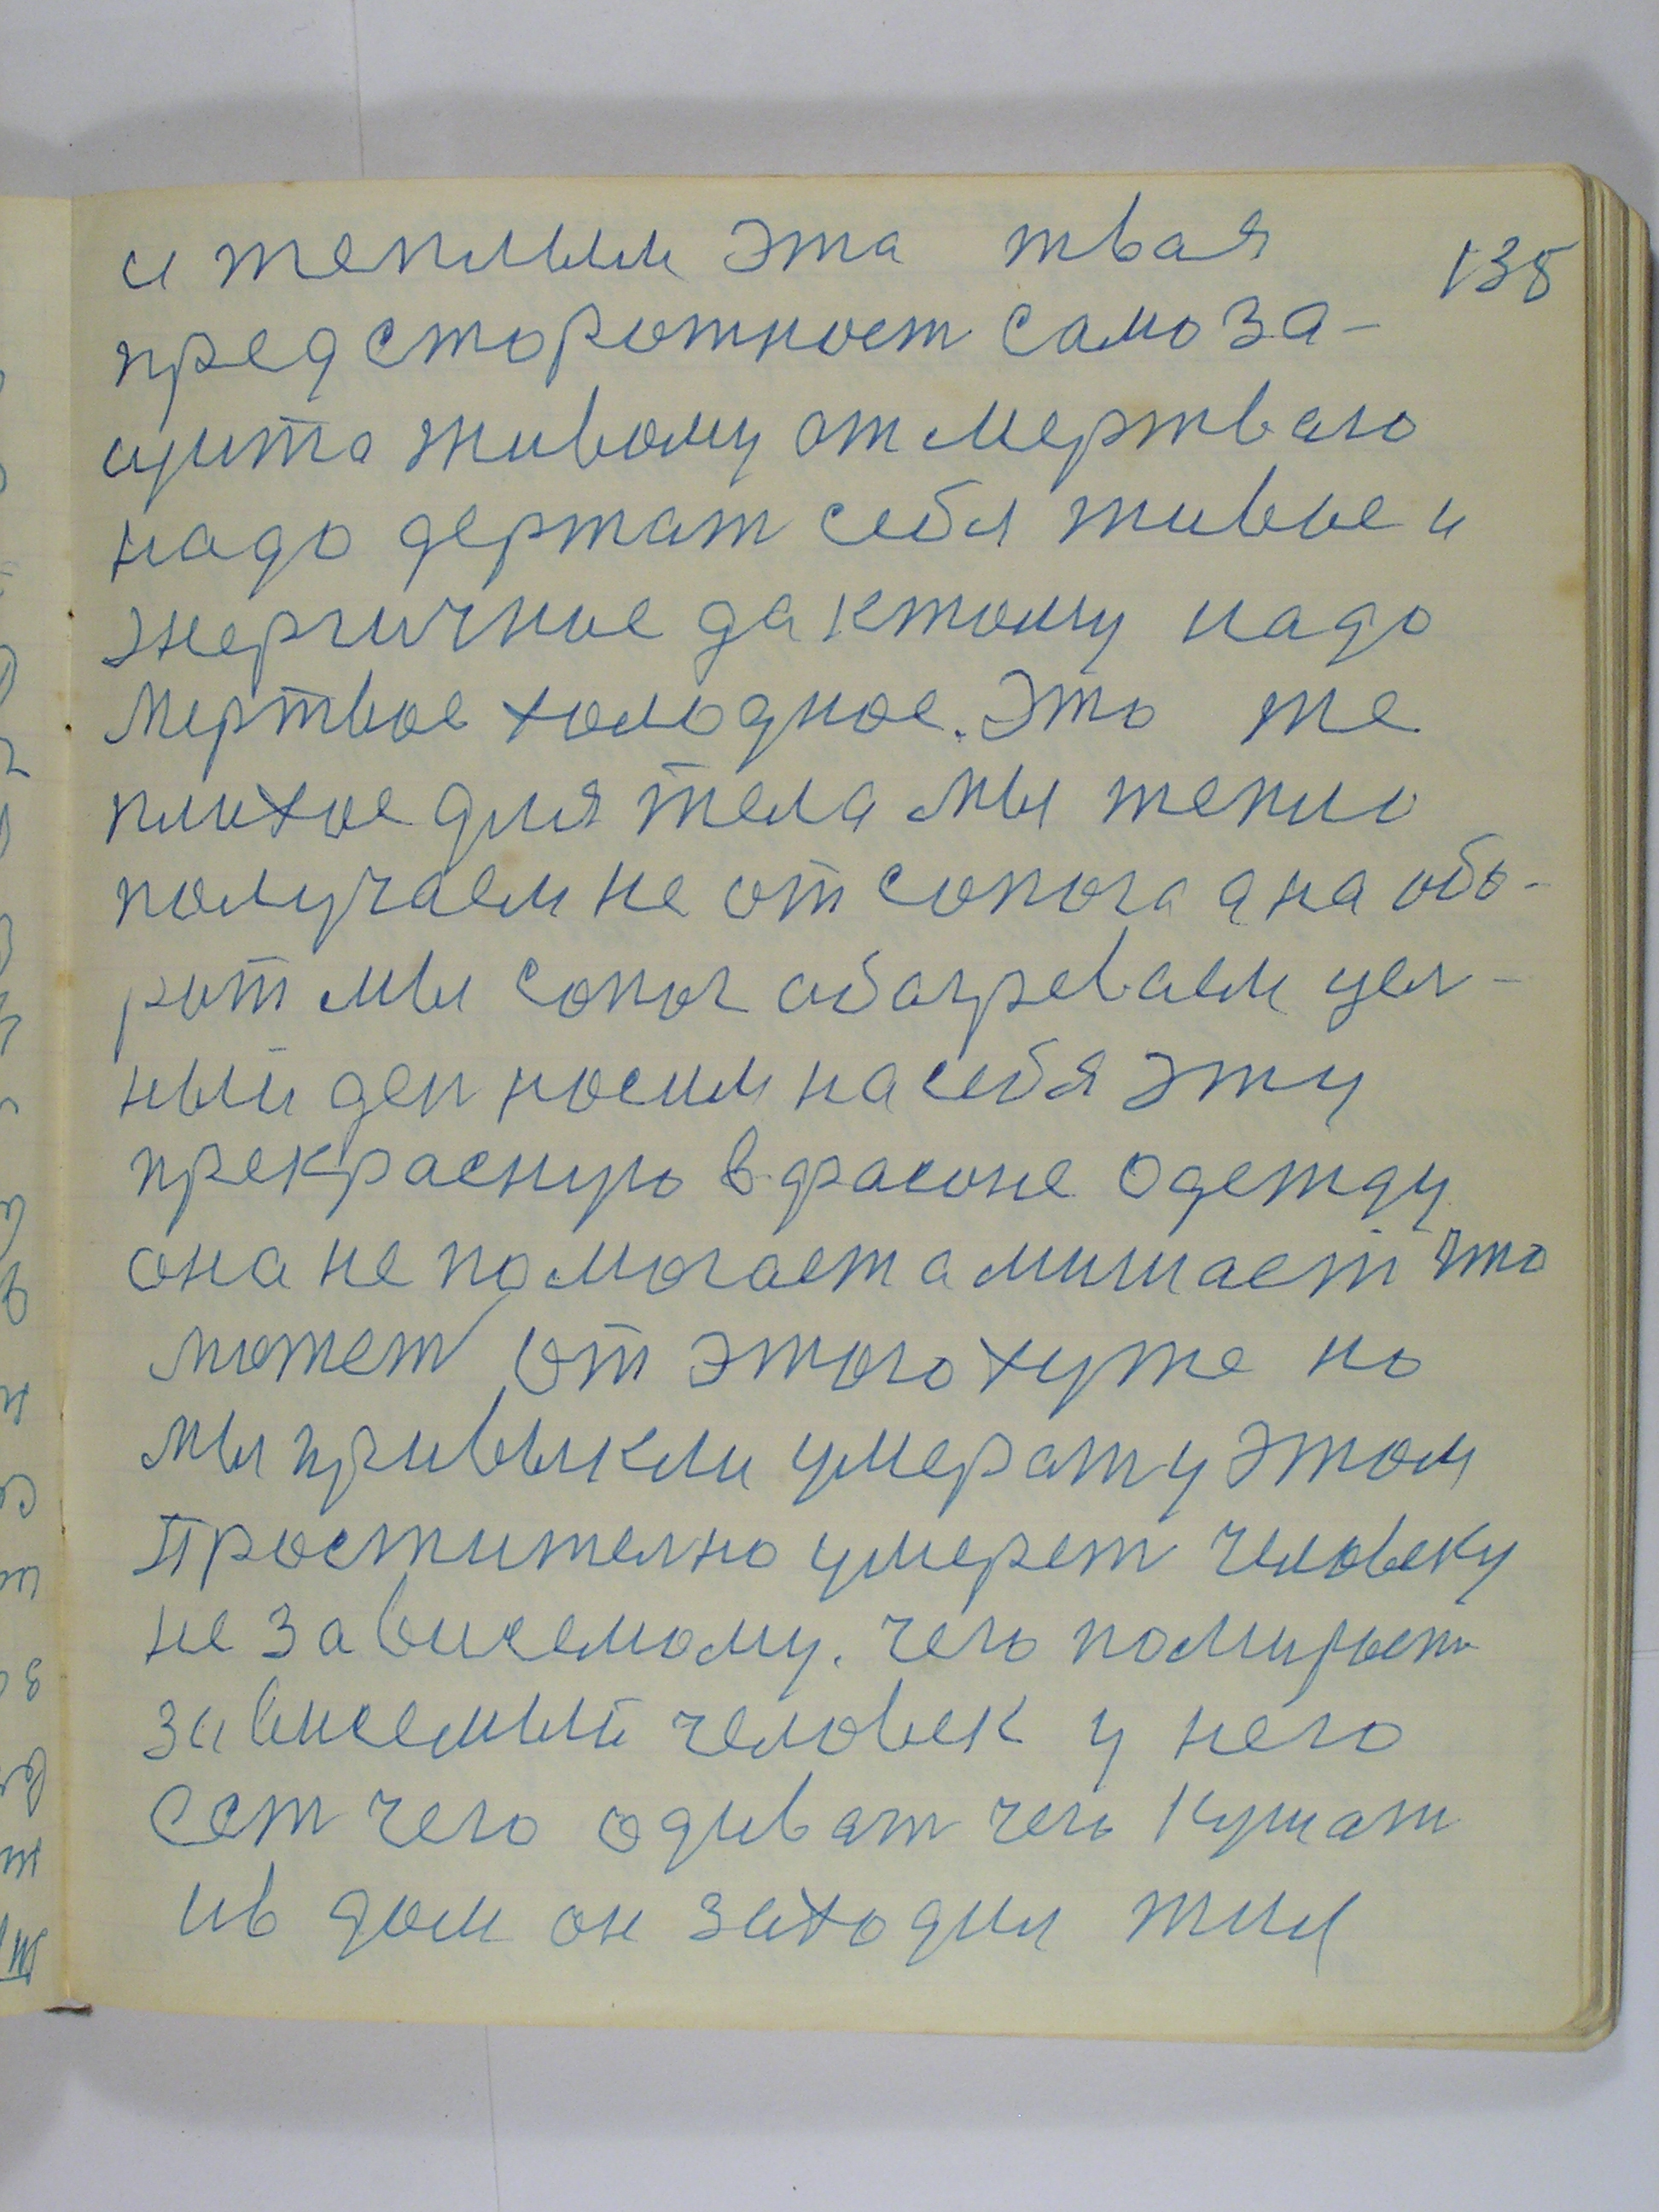 135
и теплым эта твая
предсторожност самоза-
щита живому от мертваго
надо держат себя живое и
энергичное да ктому надо
Мертвое холодное. Это же
плихое для тела Мы тепло
получаем не от сопога а на обо-
рот мы сопог обагреваем цел-
ный ден носим на себя эту
прекрасную в фасоне одежду
она не помогает а мишает что
может от этого хуже но
мы привыкли умерат у этом
Простително умерет человеку
не зависемому. чего помирает
зависемый человек у него
Ест чего одиват чего Кушат
ив дом он заходил жил